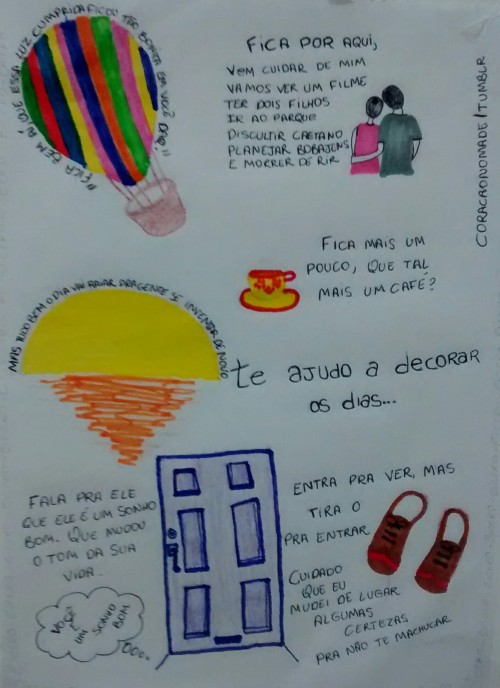 "FICA BEM AÍ QUE ESSA LUZ CUMPRIDA FICOU TÃO BONITA EM VOCÊ DAQUI"
FICA POR AQUI,
VEM CUIDAR DE MIM
VAMOS VER UM FILME
TER DOIS FILHOS
IR AO PARQUE
DISCUTIR CAETANO
PLANEJAR BOBAJENS
E MORRER DE RIR
CORACAONOMADE/TUMBLR
FICA MAIS UM
POUCO, QUE TAL
MAIS UM CAFÉ?
MAS TUDO BEM O DIA VAI RAIAR PRAGENTE SE INVENTAR DE NOVO
te AJUDO A decorar
os dias...
FALA PRA ELE
QUE ELE É UM SONHO
BOM. QUE MUDOU
O TOM DA SUA
VIDA...
VOCÊ É
UM SONHO
BOM
ENTRA PRA VER, MAS
TIRA O
PRA ENTRAR
CUIDADO
QUE EU
MUDEI DE LUGAR
ALGUMAS
CERTEZAS
PRA NÃO TE MACHUCAR